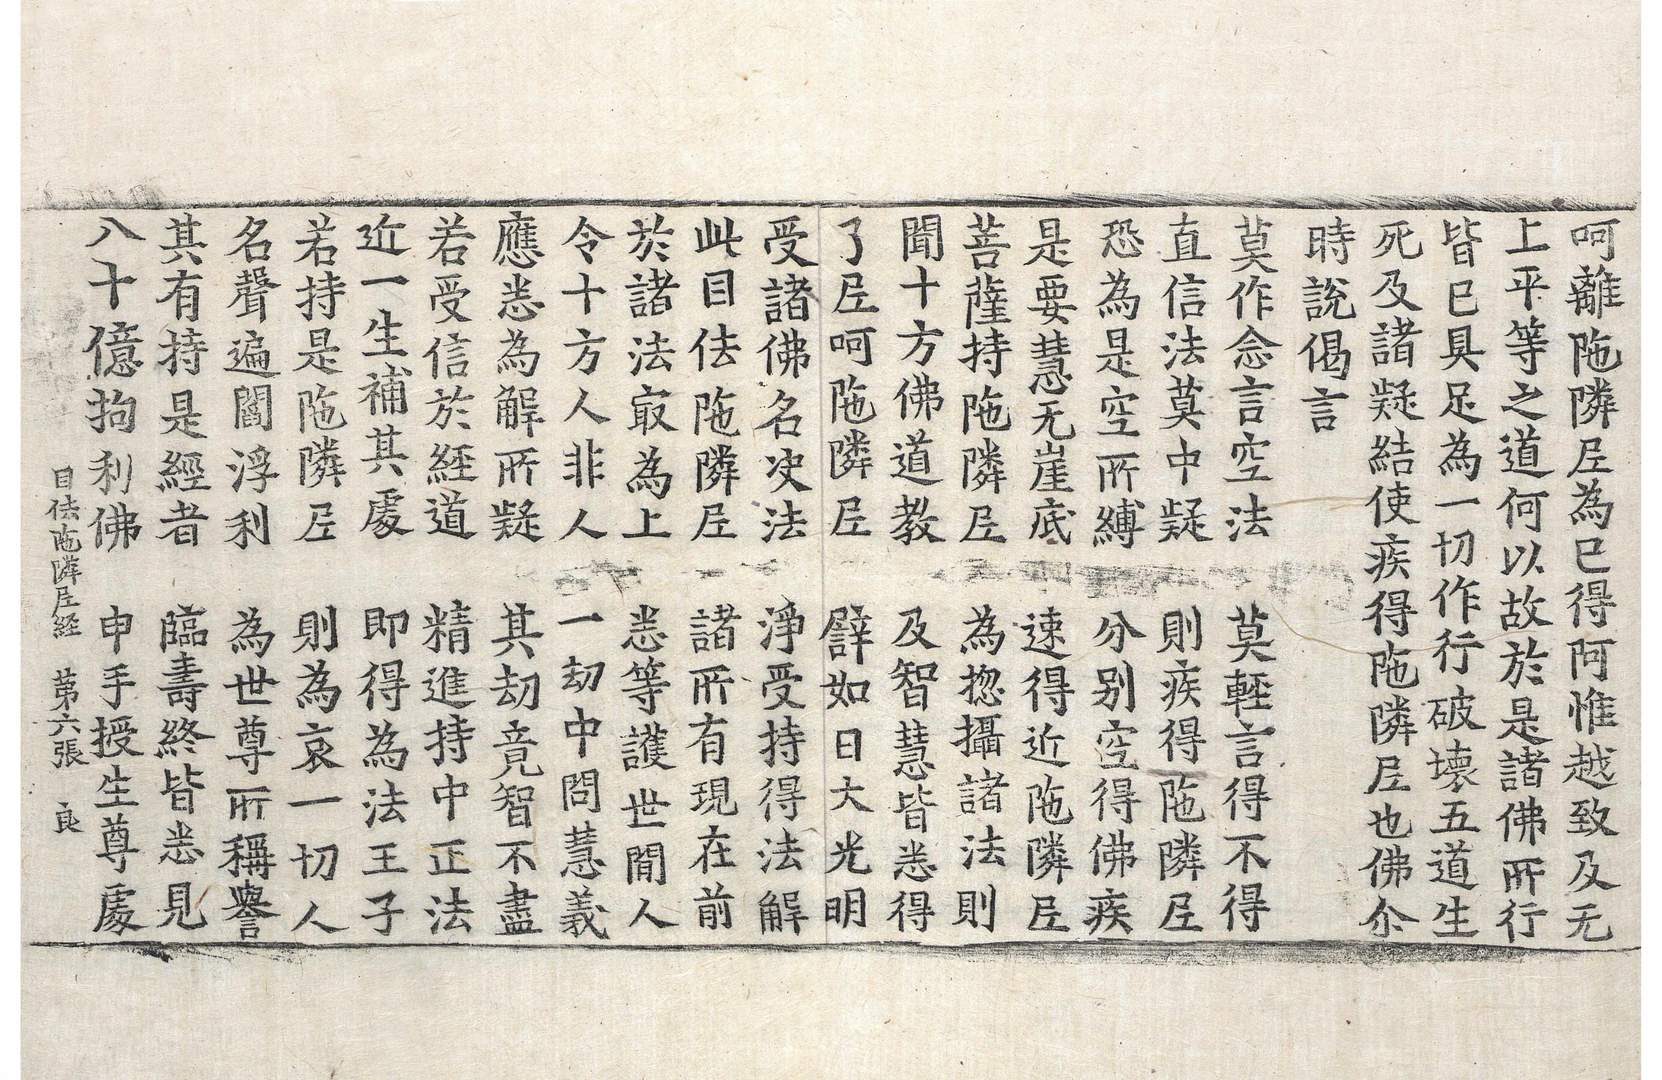 呵離陁隣𡰱為已得阿惟越致及无
上平等之道何以故於是諸佛所行
皆已具足為一切作行破壞五道生
死及諸疑結使疾得陁隣𡰱也佛尒
時說偈言
莫作念言空法　莫輕言得不得
直信法莫中疑　則疾得陁隣𡰱
恐為是空所縛　分別空得佛疾
是要慧无崖底　速得近陁隣𡰱
菩薩持陁隣𡰱　為揔攝諸法則
聞十方佛道教　及智慧皆悉得
了𡰱呵陁隣𡰱　譬如日大光明
受諸佛名决法　淨受持得法解
此目佉陁隣𡰱　諸所有現在前
於諸法㝡為上　悉等護世間人
令十方人非人　一劫中問慧義
應悉為解所疑　其劫竟智不盡
若受信於經道　精進持中正法
近一生補其處　即得為法王子
若持是陁隣𡰱　則為哀一切人
名聲遍閻浮利　為世尊所稱譽
其有持是經者　臨壽終皆悉見
八十億拘利佛　申手授生尊處
目佉陁隣𡰱経　第六張　良